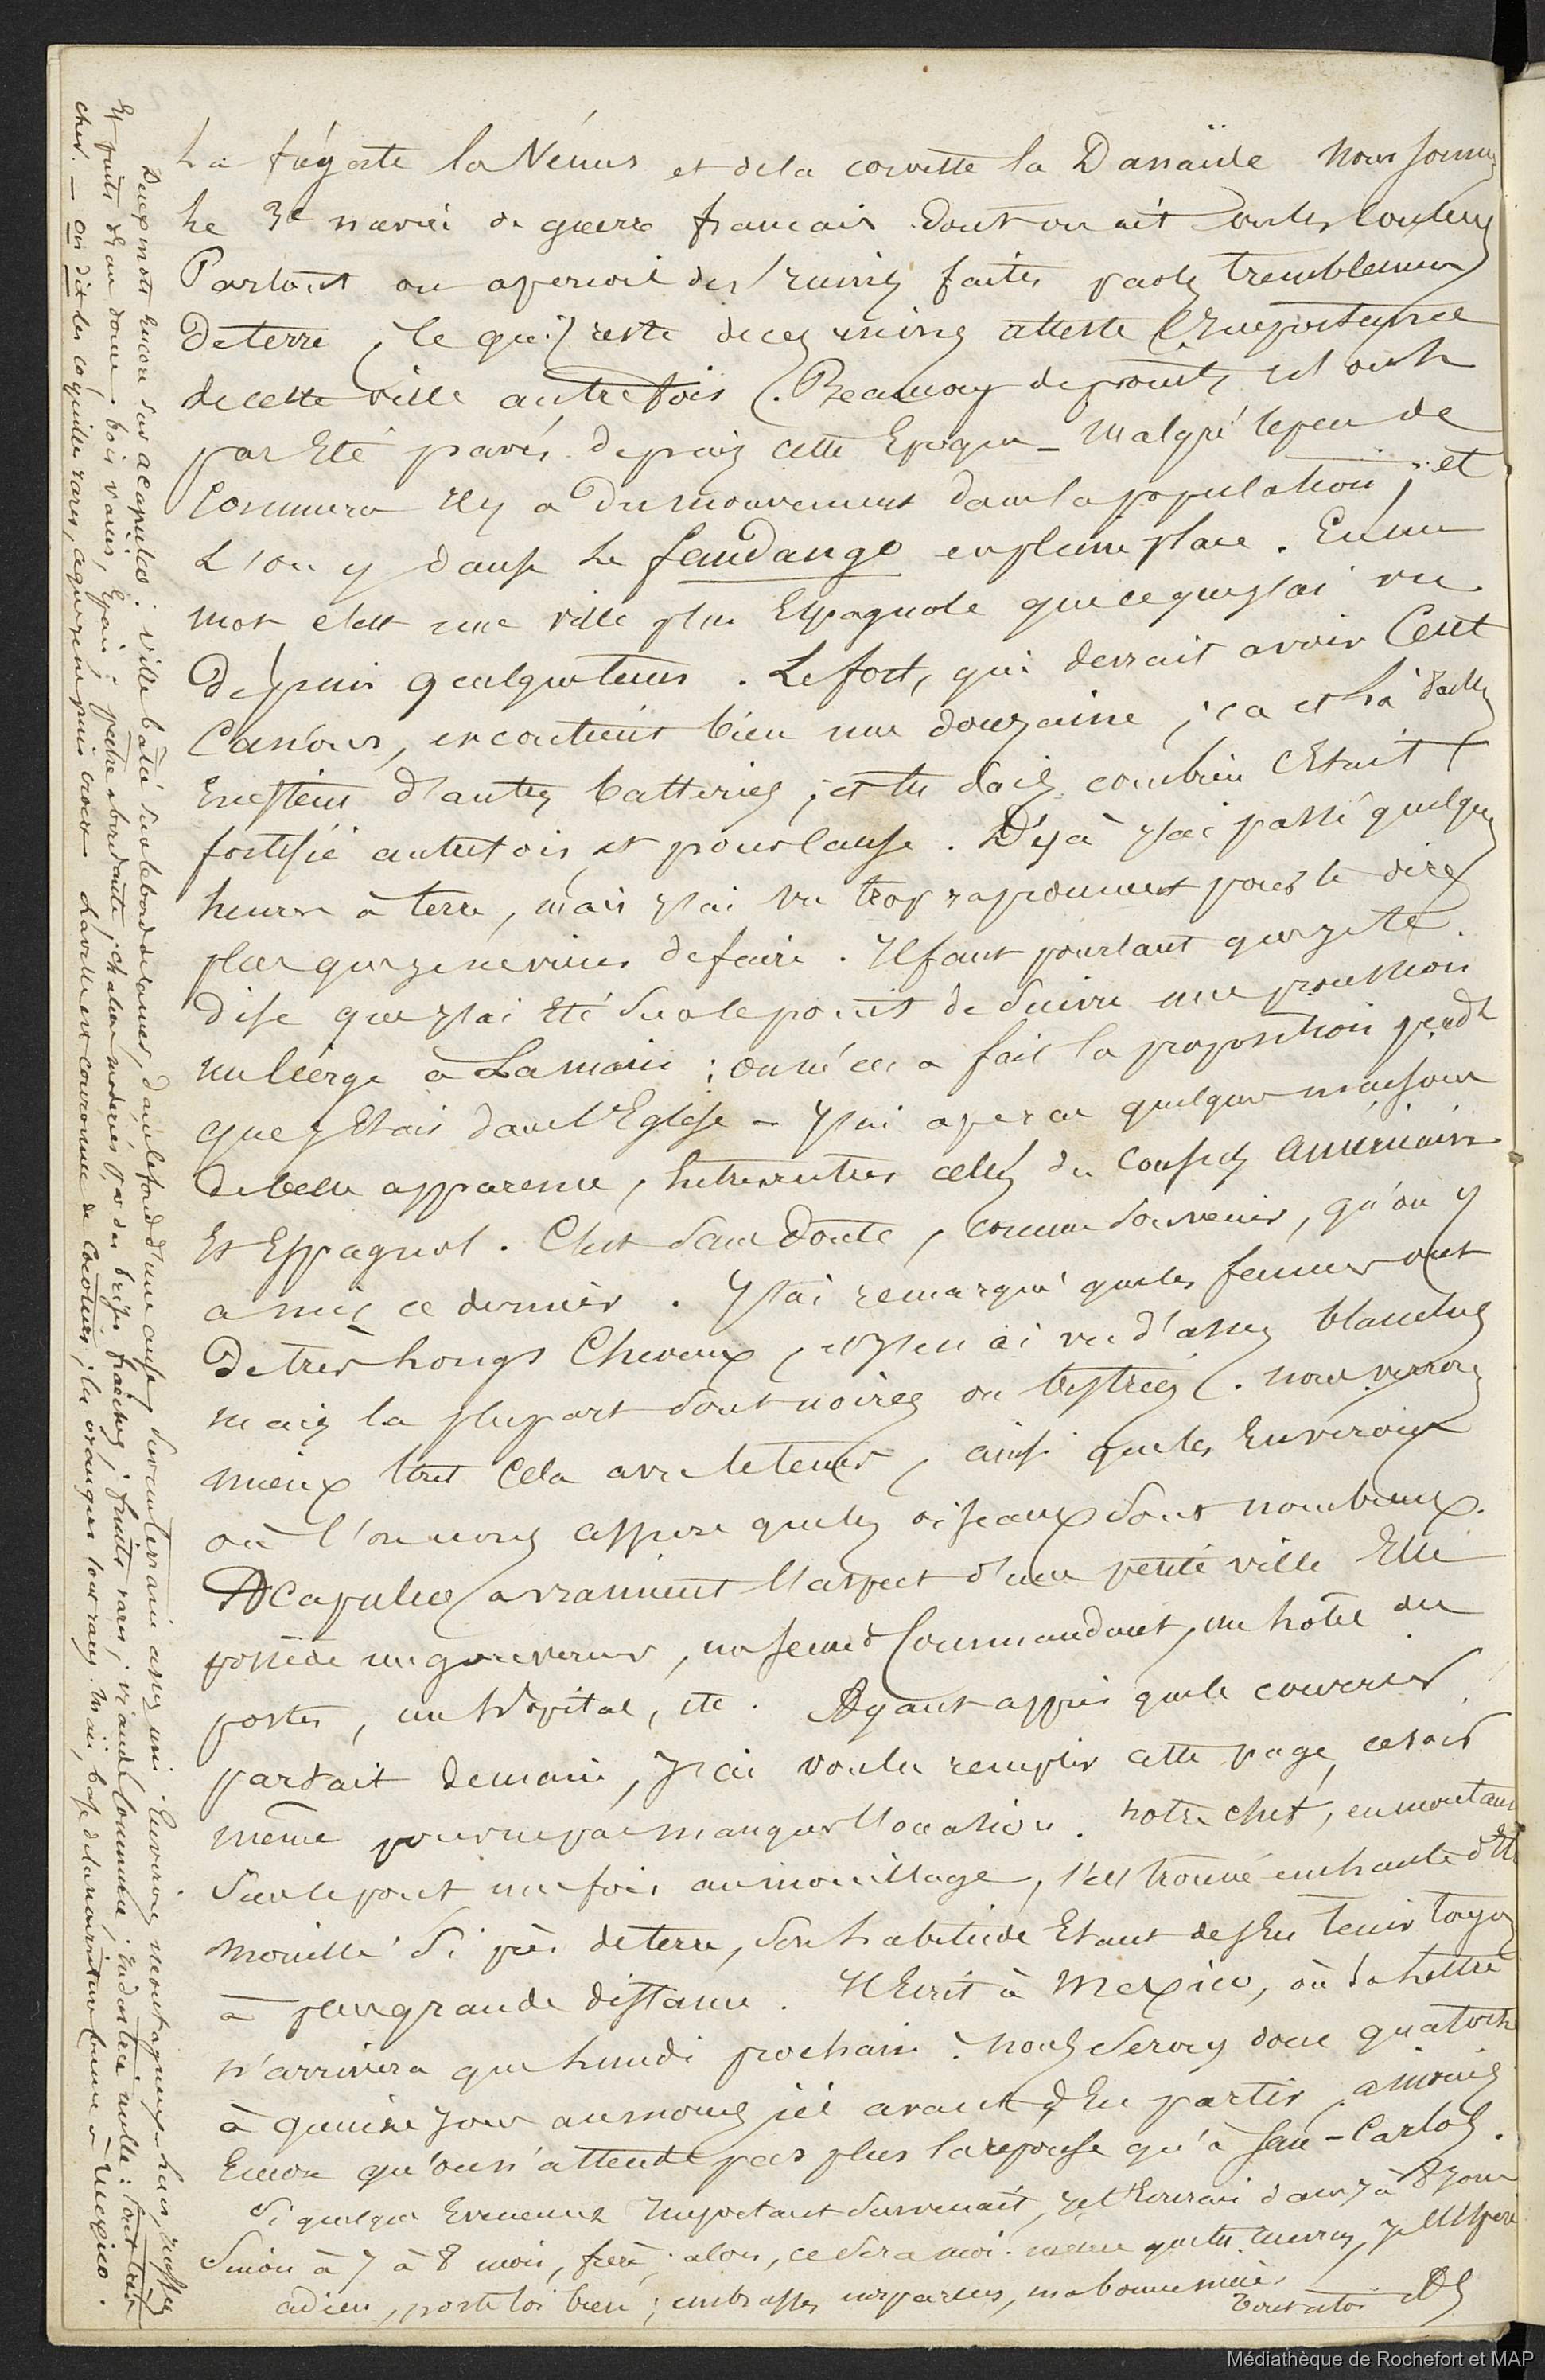 La frégate la Vénus et de la corvette la Danaïde nous sommes
Le 3e navire de guerre francais dont on ait vu les couleurs
Partout on apercoit des ruines faites par les tremblemens
De terre, le qu'il reste de ces ruines atteste l'Importance
de cette ville autrefois. Beaucoup de ponts ont
pas Eté pavés depuis cette Epoque _ Malgré le peu de
Commerce Il y a Du mouvement dans la population ; et
L'on y danse Le fandango en pleine place. En un
mot c'est une ville plus Espagnole que ce que j'ai vu
Depuis quelque tems. Le fort, qui devrait avoir Cent
Canons, en contient bien une douzaine ;
d'autres batteries ; et tu sais combien c'Etait
fortifié autrefois et pour cause. Déjà j'ai passé quelques
heures à terre, mais j'ai vu trop rapidement pour te dire
plus que je ne viens de faire. Il faut pourtant que je te
dise que j'ai Eté sur le point de suivre une procession
un cierge à La main ; on m'en a fait la proposition pendt
que j'Etais dans l'Eglise _ J'ai apercu quelques maisons
de belle apparence, Entr'autres celles du Consuls Américain
Et Espagnol. C'est sans doute, comme souvenir, qu'on y
a mis ce dernier. J'ai remarqué que les femmes ont
De très longs Cheveux, et j'en ai vu d'assez blanches
mais la plupart sont noires ou bistrées. nous verrons
mieux tout Cela avec le tems, ainsi que les Environs
où l'on nous assure que les oiseaux sont nombreux.
Acapulco a vraiment l'aspect d'une petite ville Elle
possède un gouverneur, un second Commandant, un hôtel des
postes, un hôpital, etc. Ayant appris que le courrier
partait demain, j'ai voulu remplir cette page, ce soir
même pour ne pas manquer l'occasion. Notre chef, en montant
Sur le pont une fois au mouillage, s'est trouvé enchanté d'Etre
mouillé si près de terre, son habitude Etant de s'En tenir toujours
à plus grande distance. Il Ecrit à Mexico, où sa Lettre
n'arrivera que Lundi prochain. Nous serons donc quatorze
à quinze jours au moins ici avant d'En partir, à moins
Encore qu'on n'attende pas plus la reponse qu'à San-Carlos.
Si quelque Evenement Important survenait, je t'Ecrirais dans 7 à 8 jours
Sinon à 7 à 8 mois, frère ; alors, ce sera moi-même que tu verras, je l'Espère
adieu, porte toi bien ; embrasses nos parens, ma bonne mère
tout à toi
Deux mots Encore sur acapulco : ville bâtie sur le bord de la mer, dans le fond d'une anse, sur un terrain assez uni. Environs montagneux
Et puits d'Eau douce, bois variés, Epais ; pêche abondante ; chaleur modérées par des brises fraiches ; fruits rares ; viande Commune ; Industrie nulle : tout très
cher. _ on dit les coquilles rares, ce que je ne puis croire La ville est couronnée de Cocotiers ; les oranges sont rares. Maïs, base de la nourriture comme à Mexico.
Médiathèque de Rochefort et MAP